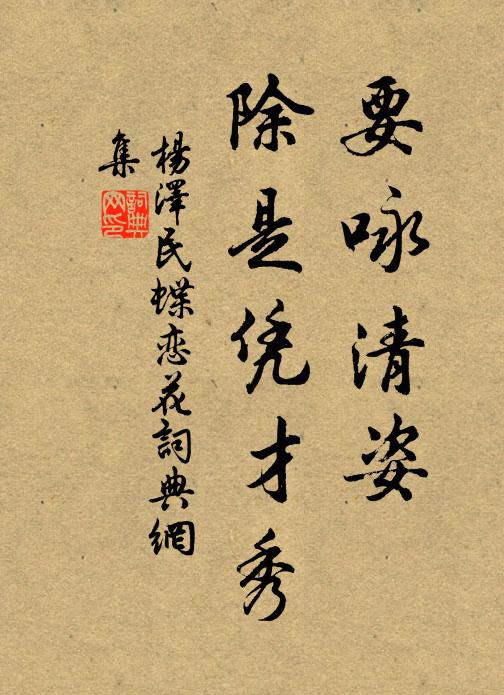 要咏清姿
除是凭才秀
楊澤民蝶恋花詞典網
集
詞典
网印